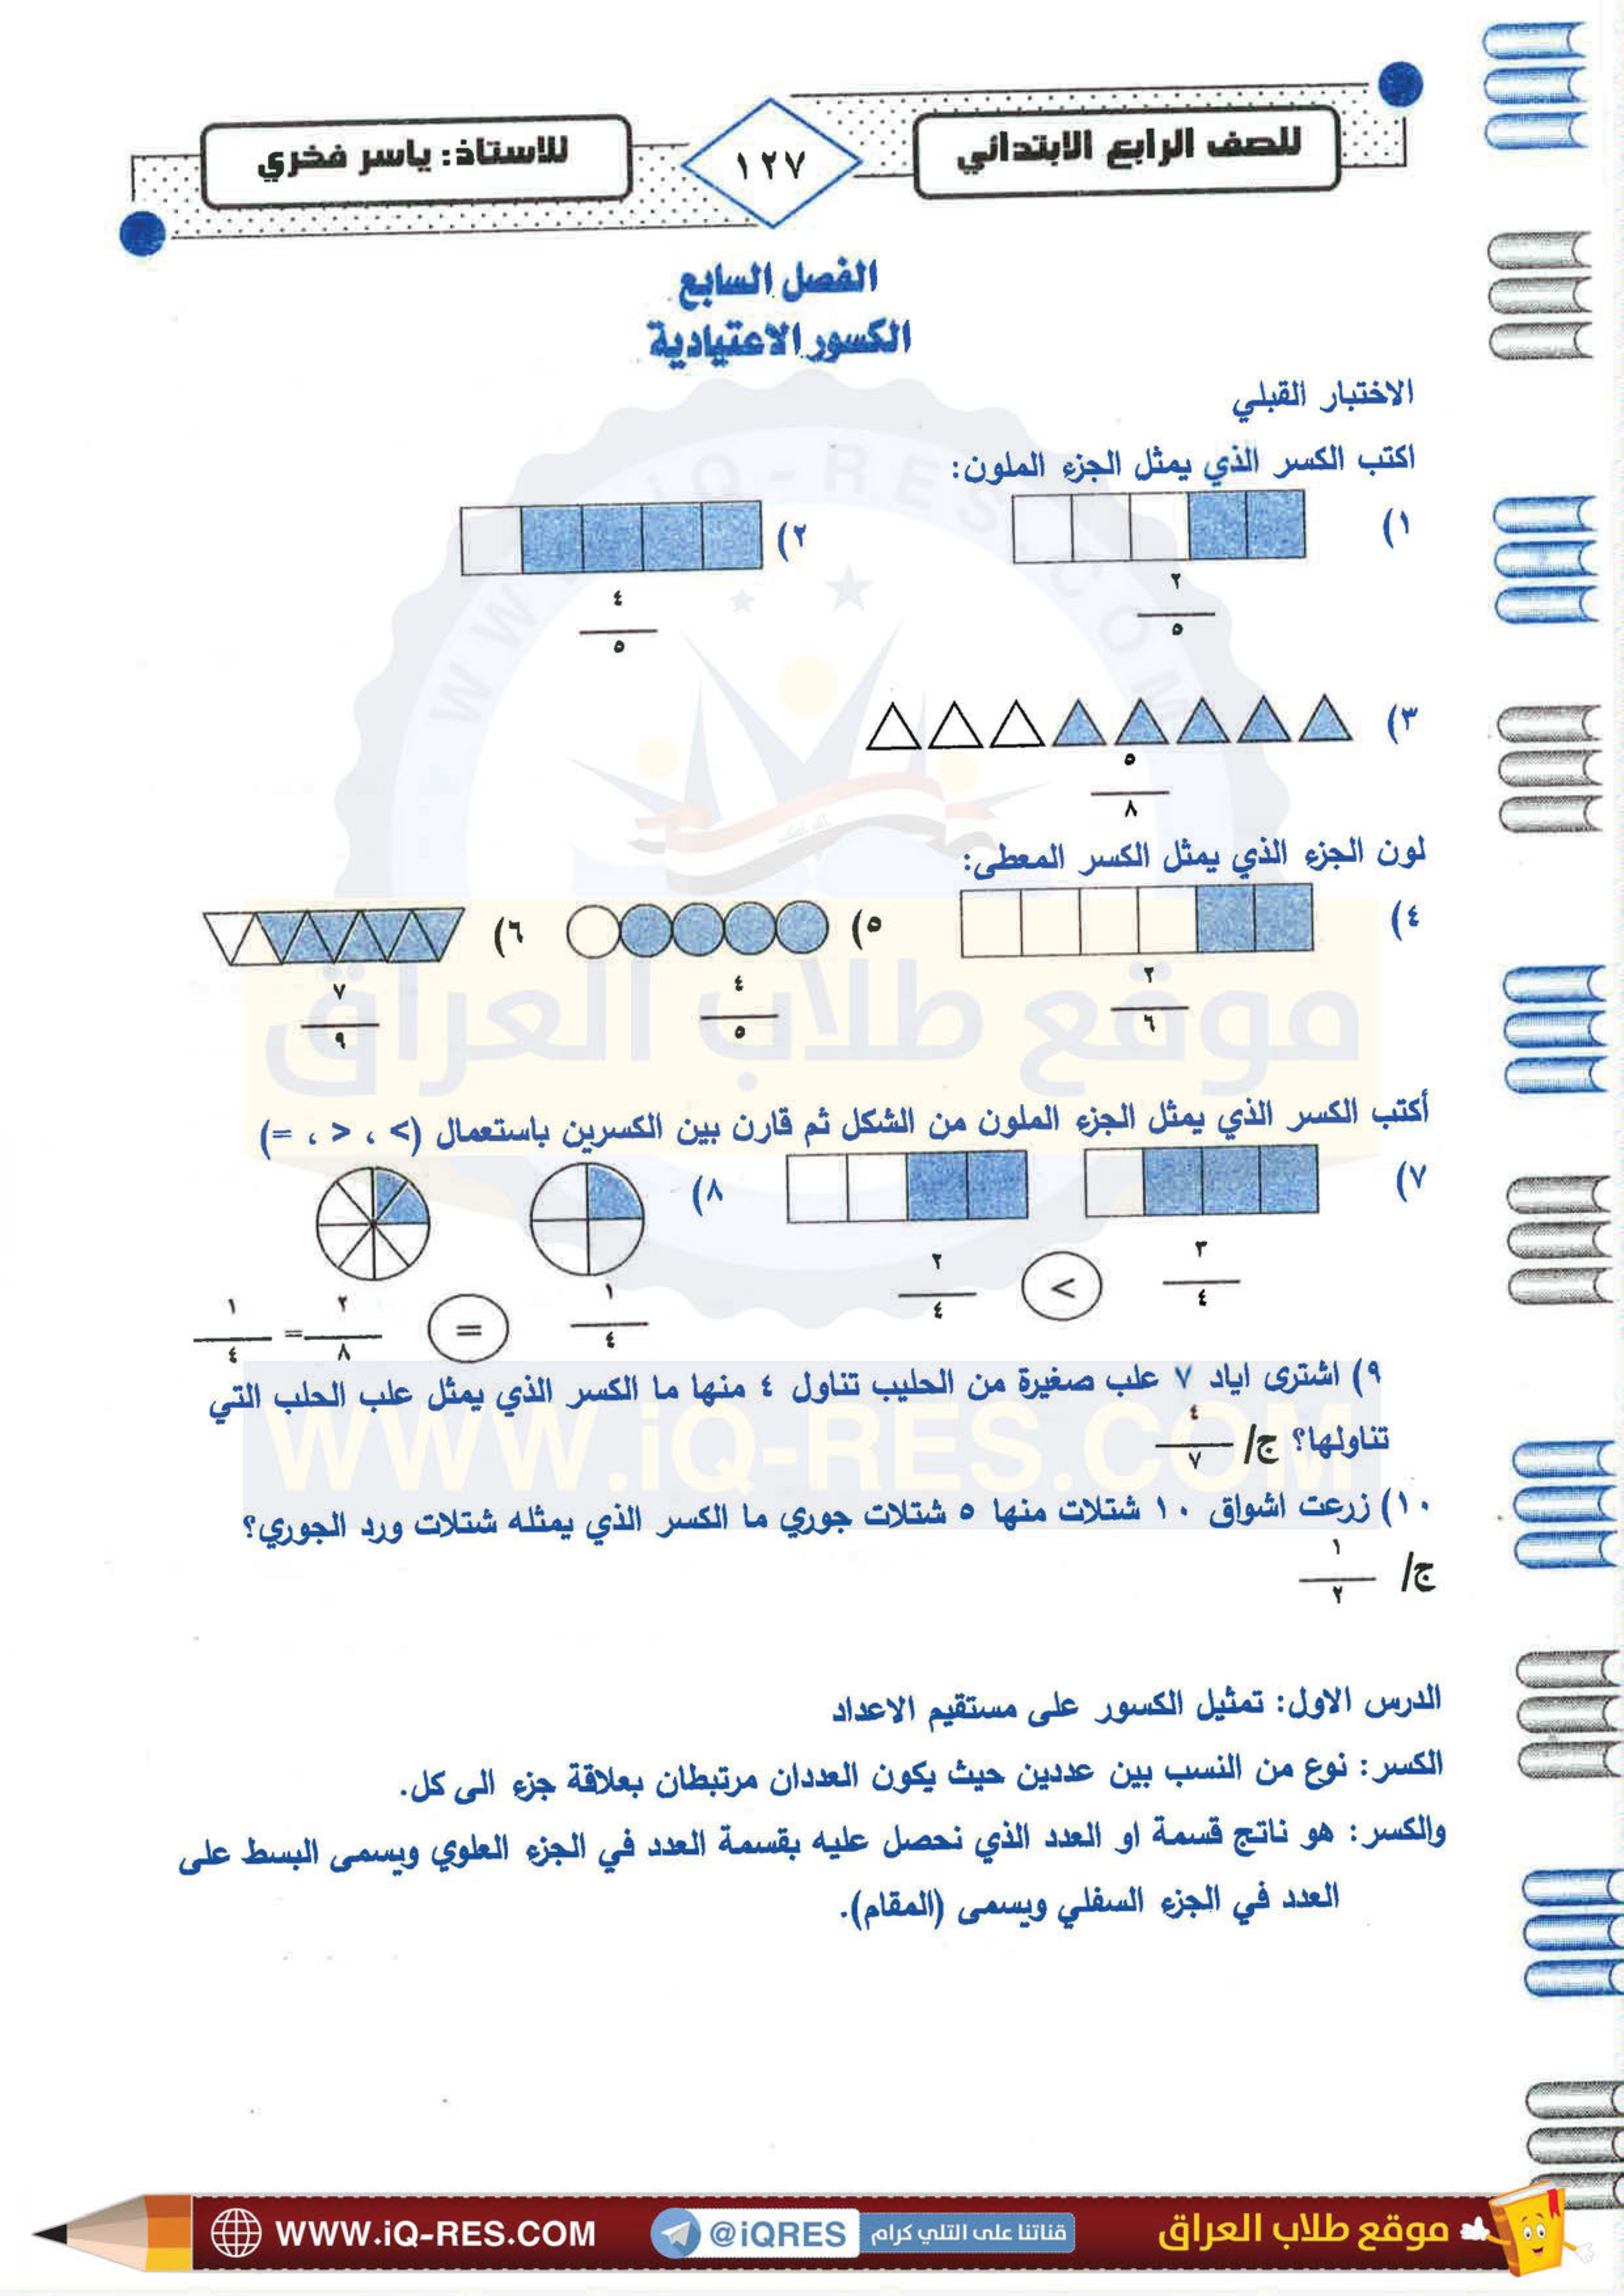 للصف الرابع الابتدائي
١٢٧
للاستاذ: ياسر فخري
الفصل السابع
الكسور الاعتيادية
الاختبار القبلي
اكتب الكسر الذي يمثل الجزء الملون:
(١
٢
٥
(٢
٤
٥
(٣
٥
٨
لون الجزء الذي يمثل الكسر المعطى:
(٤
٢
٦
(٥
٤
٥
(٦
٧
٩
أكتب الكسر الذي يمثل الجزء الملون من الشكل ثم قارن بين الكسرين باستعمال (> ، < ، =)
(٧
٣
٤
<
٢
٤
(٨
١
٤
=
٢
٨
=
١
٤
٩) اشترى اياد ٧ علب صغيرة من الحليب تناول ٤ منها ما الكسر الذي يمثل علب الحلب التي
تناولها؟ ج/
٤
٧
١٠) زرعت اشواق ١٠ شتلات منها ٥ شتلات جوري ما الكسر الذي يمثله شتلات ورد الجوري؟
ج/
١
٢
الدرس الاول: تمثيل الكسور على مستقيم الاعداد
الكسر: نوع من النسب بين عددين حيث يكون العددان مرتبطان بعلاقة جزء الى كل.
والكسر: هو ناتج قسمة او العدد الذي نحصل عليه بقسمة العدد في الجزء العلوي ويسمى البسط على
العدد في الجزء السفلي ويسمى (المقام).
WWW.iQ-RES.COM
موقع طلاب العراق
WWW.iQ-RES.COM
موقع طلاب العراق
قناتنا على التلي كرام
@iQRES
WWW.iQ-RES.COM